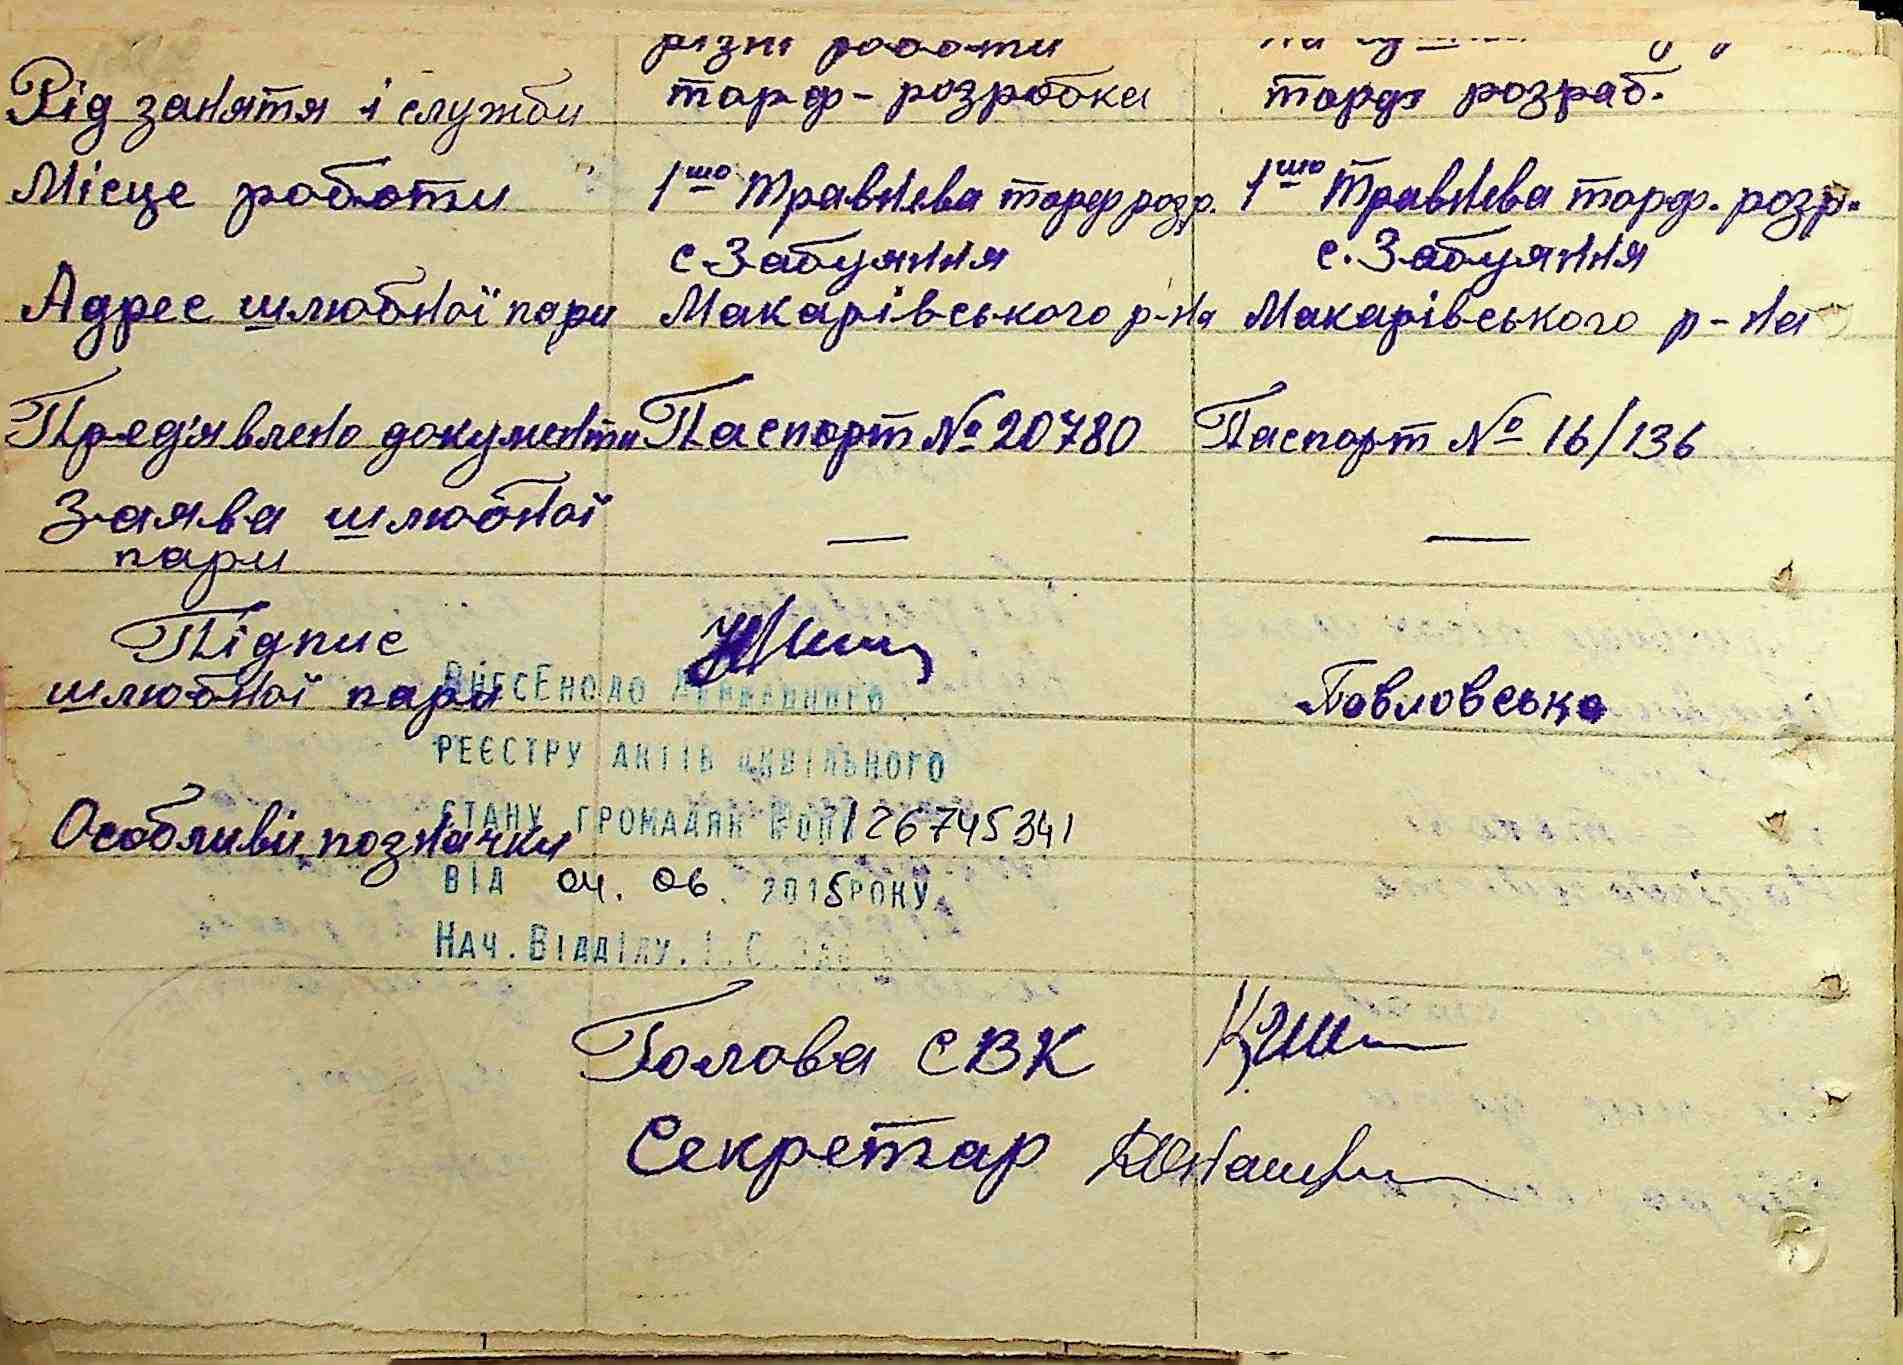 різні роботи
Рід заняття і служби торф-розробка торф розраб.
Місце роботи 1шо Травнева торф розр. 1шо Травнева торф. розр.
с. Забуяння с. Забуяння
Адрес шлюбної пари Макарівського р-на Макарівського р-на
Пред'явлено документи Паспорт № 20780 Паспорт № 16/136
Заява шлюбної
пари — —
Підпис
шлюбної пари Павловська
Внесено до Державного
реєстру актів цивільного
стану громадян 126745341
Особливі позначки
від 04. 06. 2015 року
Нач. Відділу. І. С.
Голова СВК
Секретар